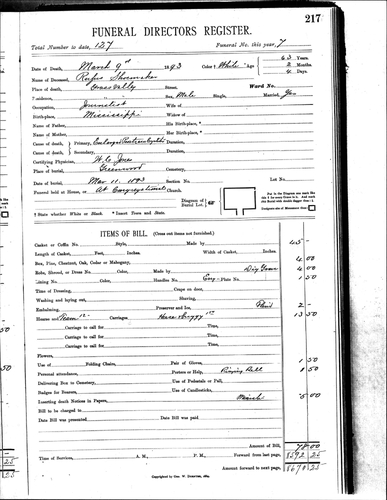 217
FUNERAL DIRECTORS REGISTER.
Total Number to date, 127 Funeral No. this year, 7
Date of Death, March 9th 1893 Color † White Age 63 Years.
2 Months.
4 Days.
Name of Deceased, Rufus Shoemaker
Place of death, Grass Valley Street, Ward No.
Residence, Sex, Male Single, Married, Yes
Occupation, Journalist Wife of
Birth-place, Mississippi Widow of
Name of Father, His Birth-place, *
Name of Mother, Her Birth-place, *
Cause of death, Primary, Enlarged Duration,
Cause of death, Secondary, Duration,
Certifying Physician, W. C. Jones
Place of burial, Greenwood Cemetery,
Date of burial, Mar 11. 1893 Section No. Lot No.
Funeral held at House, or At Congregational Church.
Diagram of Burial Lot.
Put in the Diagram one mark like this | for every Grave in it. And mark this Burial with double dagger thus – ‡.
Designate site of Monument thus
† State whether White or Black. * Insert Town and State.
ITEMS OF BILL. (Cross out items not furnished.)
Casket or Coffin No. Style, Made by 45 -
Length of Casket, Feet, Inches. Width of Casket, Inches.
Box, Pine, Chestnut, Oak, Cedar or Mahogany, 4 00
Robe, Shroud, or Dress No. Color, Made by Dig Grave 4 00
Lining No. Color, Handles No. Eng- Plate No. 1 50
Time of Dressing, Crape on door,
Washing and laying out, Shaving,
Embalming, Preserver and Ice, Paid 2 -
Hearse and Team 12- Carriages Horse & buggy 1 50 13 50
Carriage to call for Time,
Carriage to call for Time,
Carriage to call for Time,
Flowers,
Use of Folding Chairs, Pair of Gloves, 1 50
Personal attendance, Picture or Help, Ringing Bell 1 50
Delivering Box to Cemetery, Use of Pedestals or Pall,
Badges for Bearers, Use of Candlesticks,
Inserting death Notices in Papers, 5 00
Bill to be charged to
Date Bill was presented Date Bill was paid
Amount of Bill, 78.00
Time of Services, A. M., P. M., Forward from last page, 8592 25
Amount forward to next page, 8670 25